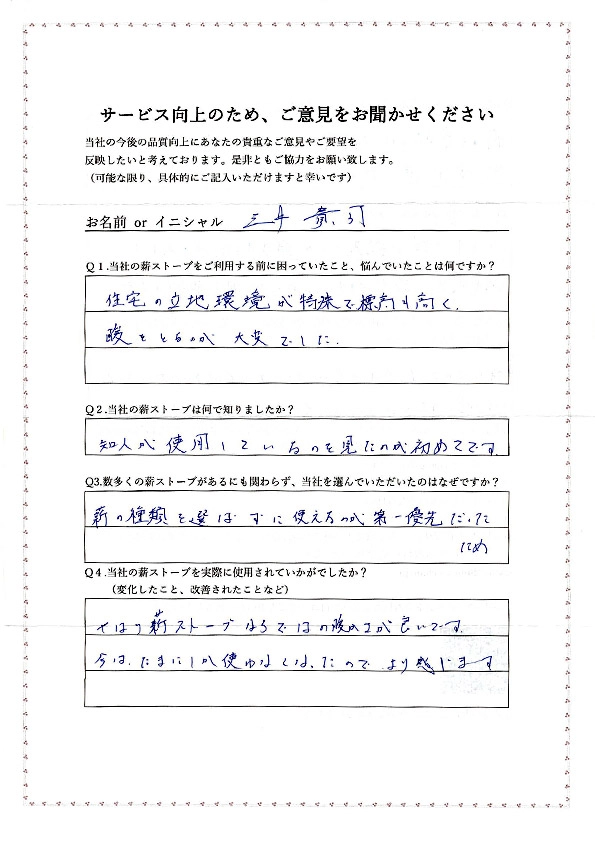 サービス向上のため、ご意見をお聞かせください
当社の今後の品質向上にあなたの貴重なご意見やご要望を
反映したいと考えております。是非ともご協力をお願い致します。
（可能な限り、具体的にご記入いただけますと幸いです）
お名前 or イニシャル 三井 貴司
Q1.当社の薪ストーブをご利用する前に困っていたこと、悩んでいたことは何ですか？
住宅の立地環境が特殊で標高も高く、
暖をとるのが 大変でした。
Q2.当社の薪ストーブは何で知りましたか？
知人が使用しているのを見たのが初めてです。
Q3.数多くの薪ストーブがあるにも関わらず、当社を選んでいただいたのはなぜですか？
薪の種類を選ばずに使えるのが第一優先だった
ため
Q4.当社の薪ストーブを実際に使用されていかがでしたか？
（変化したこと、改善されたことなど）
やはり薪ストーブならではの暖かさが良いです。
今は、たまにしか使わなくなったので より感じます